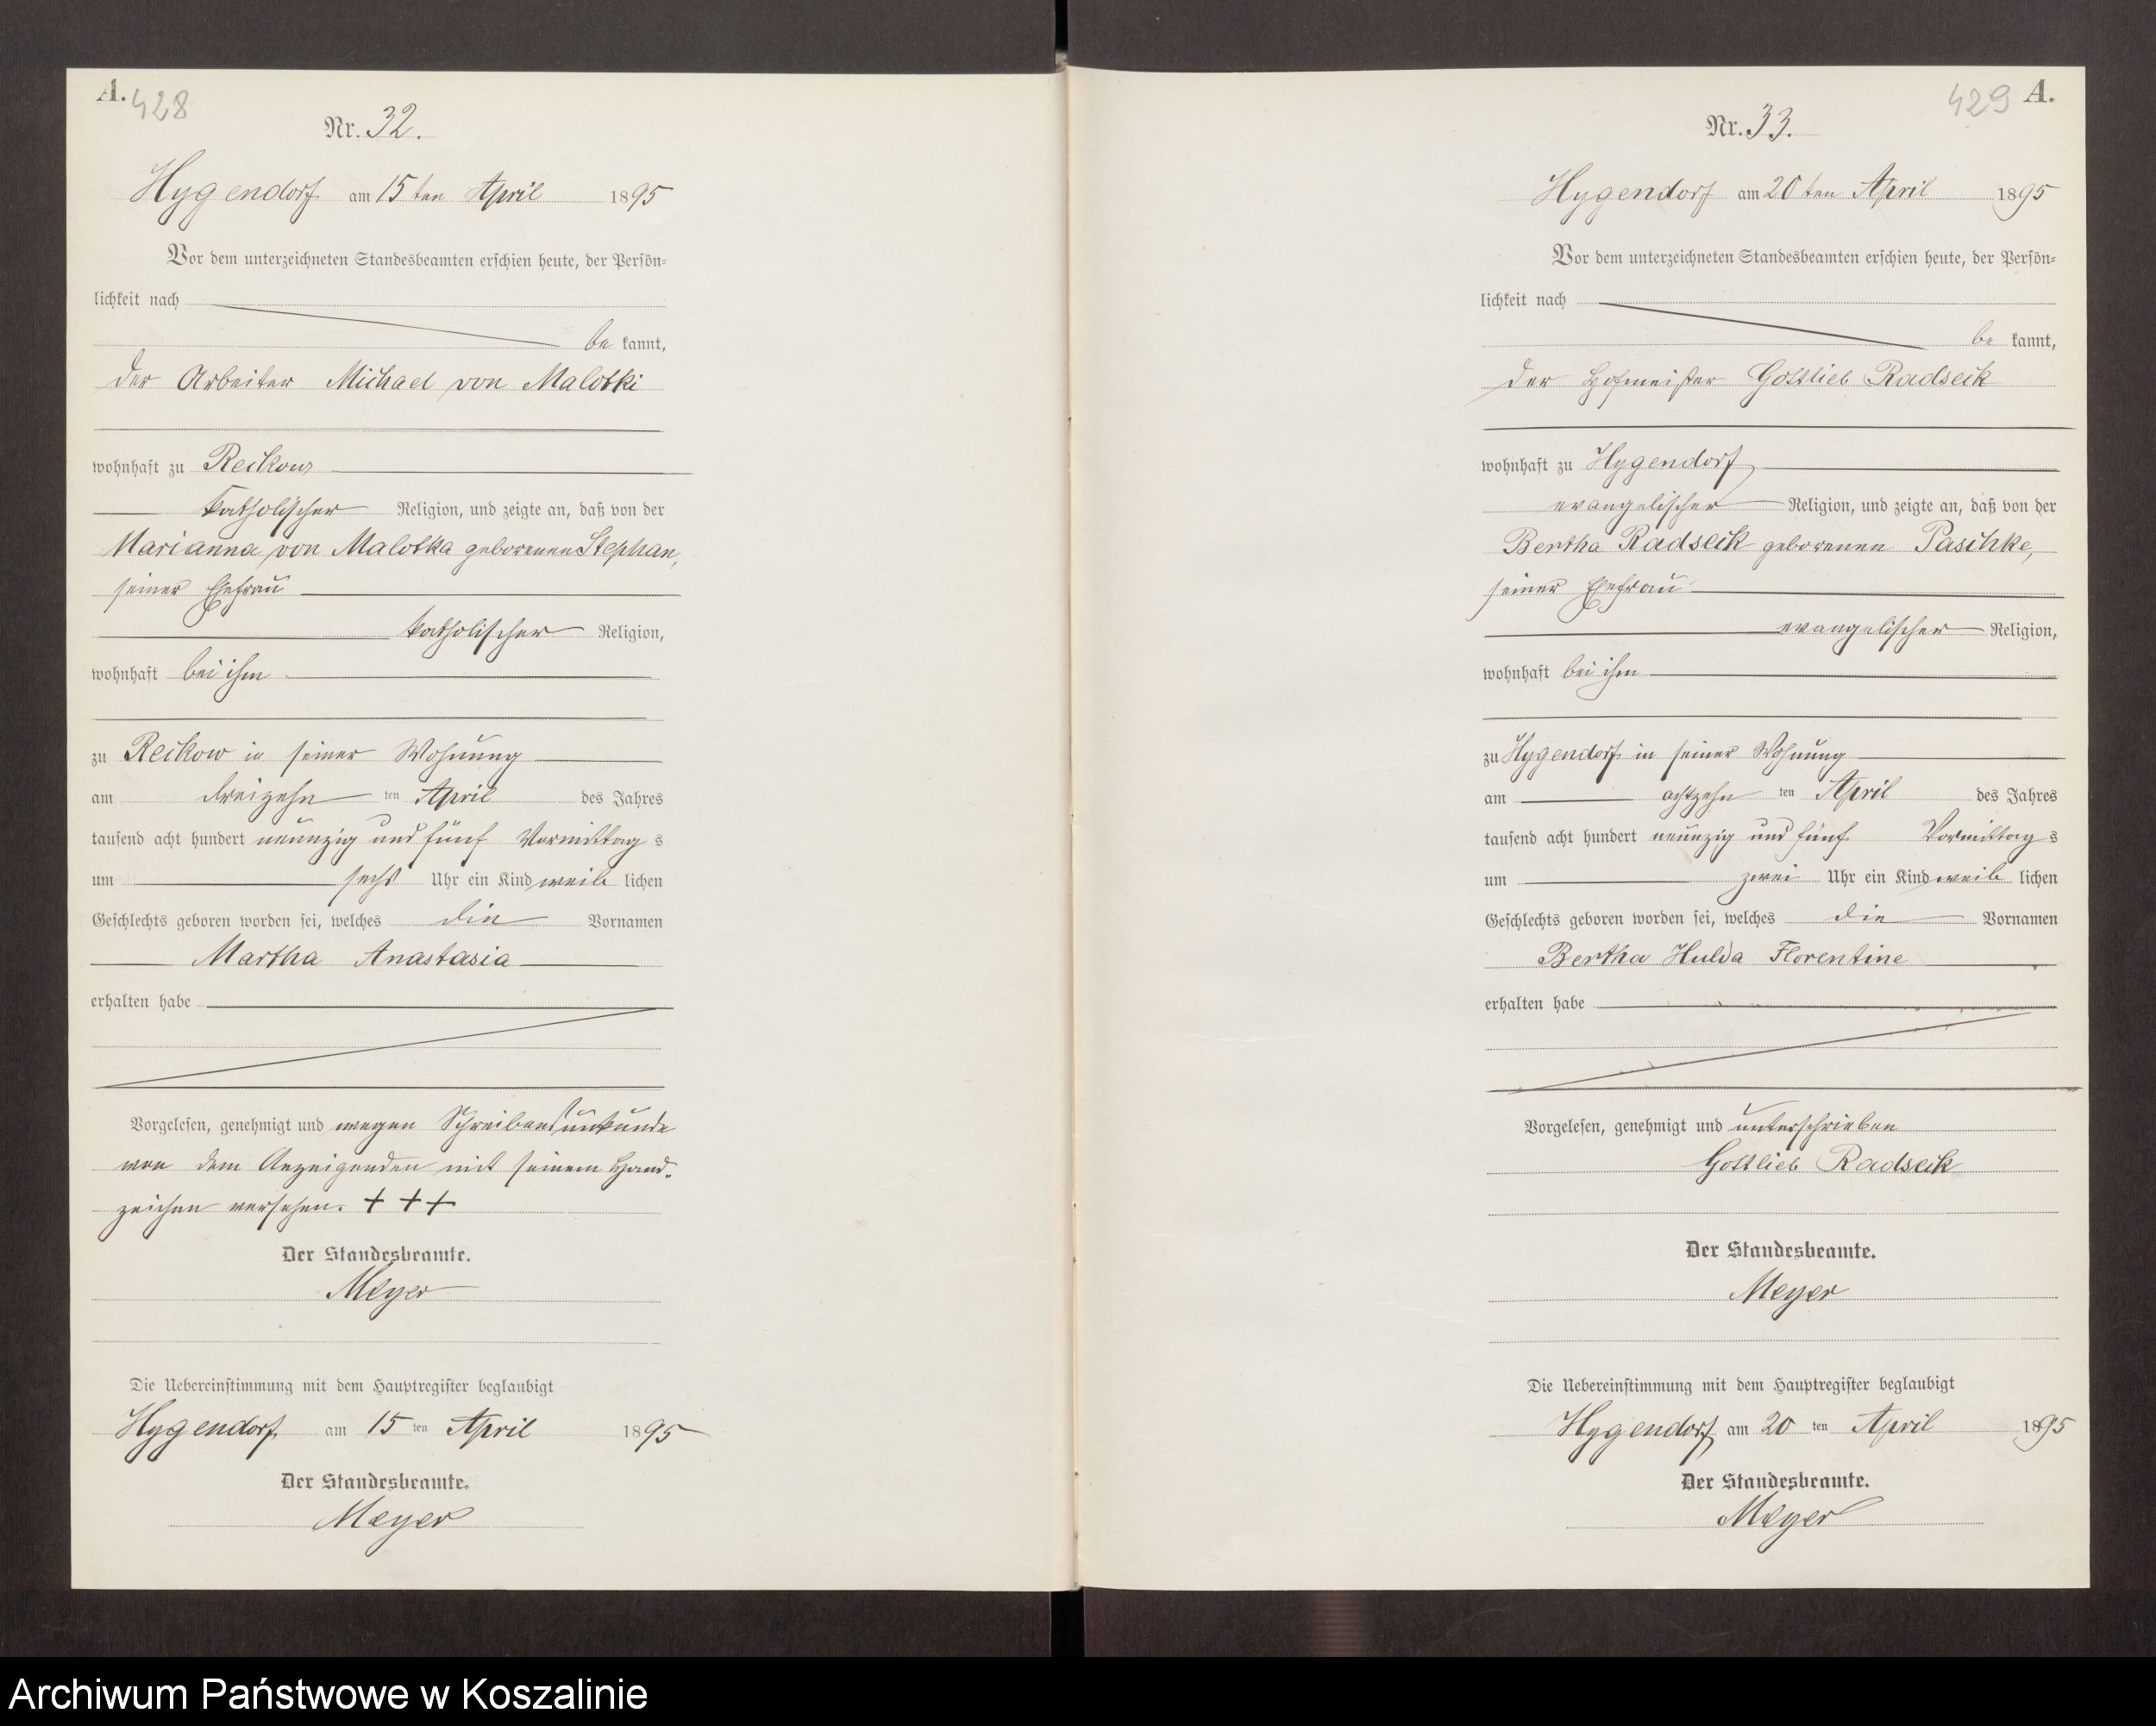 A. 428
Nr. 32.
Hygendorf am 15ten April 1895
Vor dem unterzeichneten Standesbeamten erschien heute, der Persön-
lichkeit nach
be kannt,
der Arbeiter Michael von Malotki
wohnhaft zu Reckow
katholischer Religion, und zeigte an, daß von der
Marianna von Malotka geborenen Stephan,
seiner Ehefrau
katholischer Religion,
wohnhaft bei ihm
zu Reckow in seiner Wohnung
am dreizehn ten April des Jahres
tausend acht hundert neunzig und fünf Vormittag s
um sechs Uhr ein Kind weib lichen
Geschlechts geboren worden sei, welches die Vornamen
Martha Anastasia
erhalten habe
Vorgelesen, genehmigt und wegen Schreibensunkunde
von dem Anzeigenden mit seinem Hand-
zeichen versehen. + + +
Der Standesbeamte.
Meyer
Die Uebereinstimmung mit dem Hauptregister beglaubigt
Hygendorf am 15 ten April 1895
Der Standesbeamte.
Meyer
429 A.
Nr. 33.
Hygendorf am 20ten April 1895
Vor dem unterzeichneten Standesbeamten erschien heute, der Persön-
lichkeit nach
be kannt,
der Hofmeister Gottlieb Radseck
wohnhaft zu Hygendorf
evangelischer Religion, und zeigte an, daß von der
Bertha Radseck geborenen Paschke,
seiner Ehefrau
evangelischer Religion,
wohnhaft bei ihm
zu Hygendorf in seiner Wohnung
am achtzehn ten April des Jahres
tausend acht hundert neunzig und fünf Vormittag s
um zwei Uhr ein Kind weib lichen
Geschlechts geboren worden sei, welches die Vornamen
Bertha Hulda Florentine
erhalten habe
Vorgelesen, genehmigt und unterschrieben
Gottlieb Radseck
Der Standesbeamte.
Meyer
Die Uebereinstimmung mit dem Hauptregister beglaubigt
Hygendorf am 20 ten April 1895
Der Standesbeamte.
Meyer
Archiwum Państwowe w Koszalinie